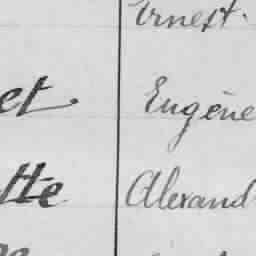 Ernest.
et Eugène
tte Alexand